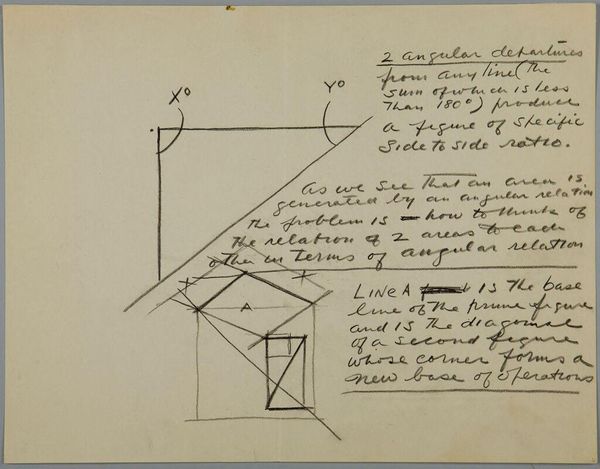 2 angular departures
from any line (the
sum of which is less
than 180°) produce
a figure of specific
side to side ratio.
X°
Y°
as we see that an area is
generated by an angular relation
the problem is how to think of
the relation of 2 areas to each
other in terms of angular relation
A
LINE A is the base
line of the prime figure
and is the diagonal
of a second figure
whose corner forms a
new base of operations